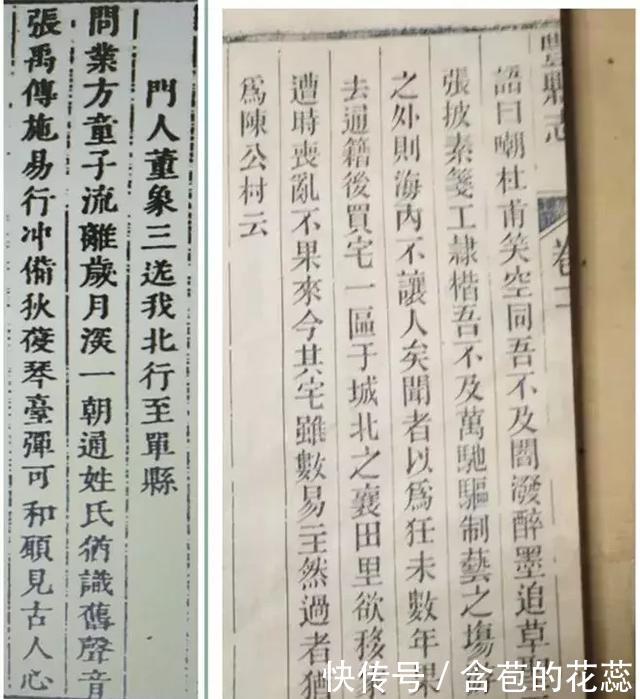 門人董象三送我北行至單縣
問業方童子流離歲月深一朝通姓氏猶識舊聲音
張禹傳施易行冲備狄葰琴臺彈可和願見古人心
豐縣志
卷
語曰嘲杜甫笑空同吾不及閻潑醉墨追草
張披素箋工隸楷吾不及萬馳驅制藝之塲
之外則海內不讓人矣聞者以爲狂未數年果
去通籍後買宅一區于城北之襄田里欲移
遭時喪亂不果來今其宅雖數易主然過者猶
爲陳公村云
快传号／含苞的花蕊